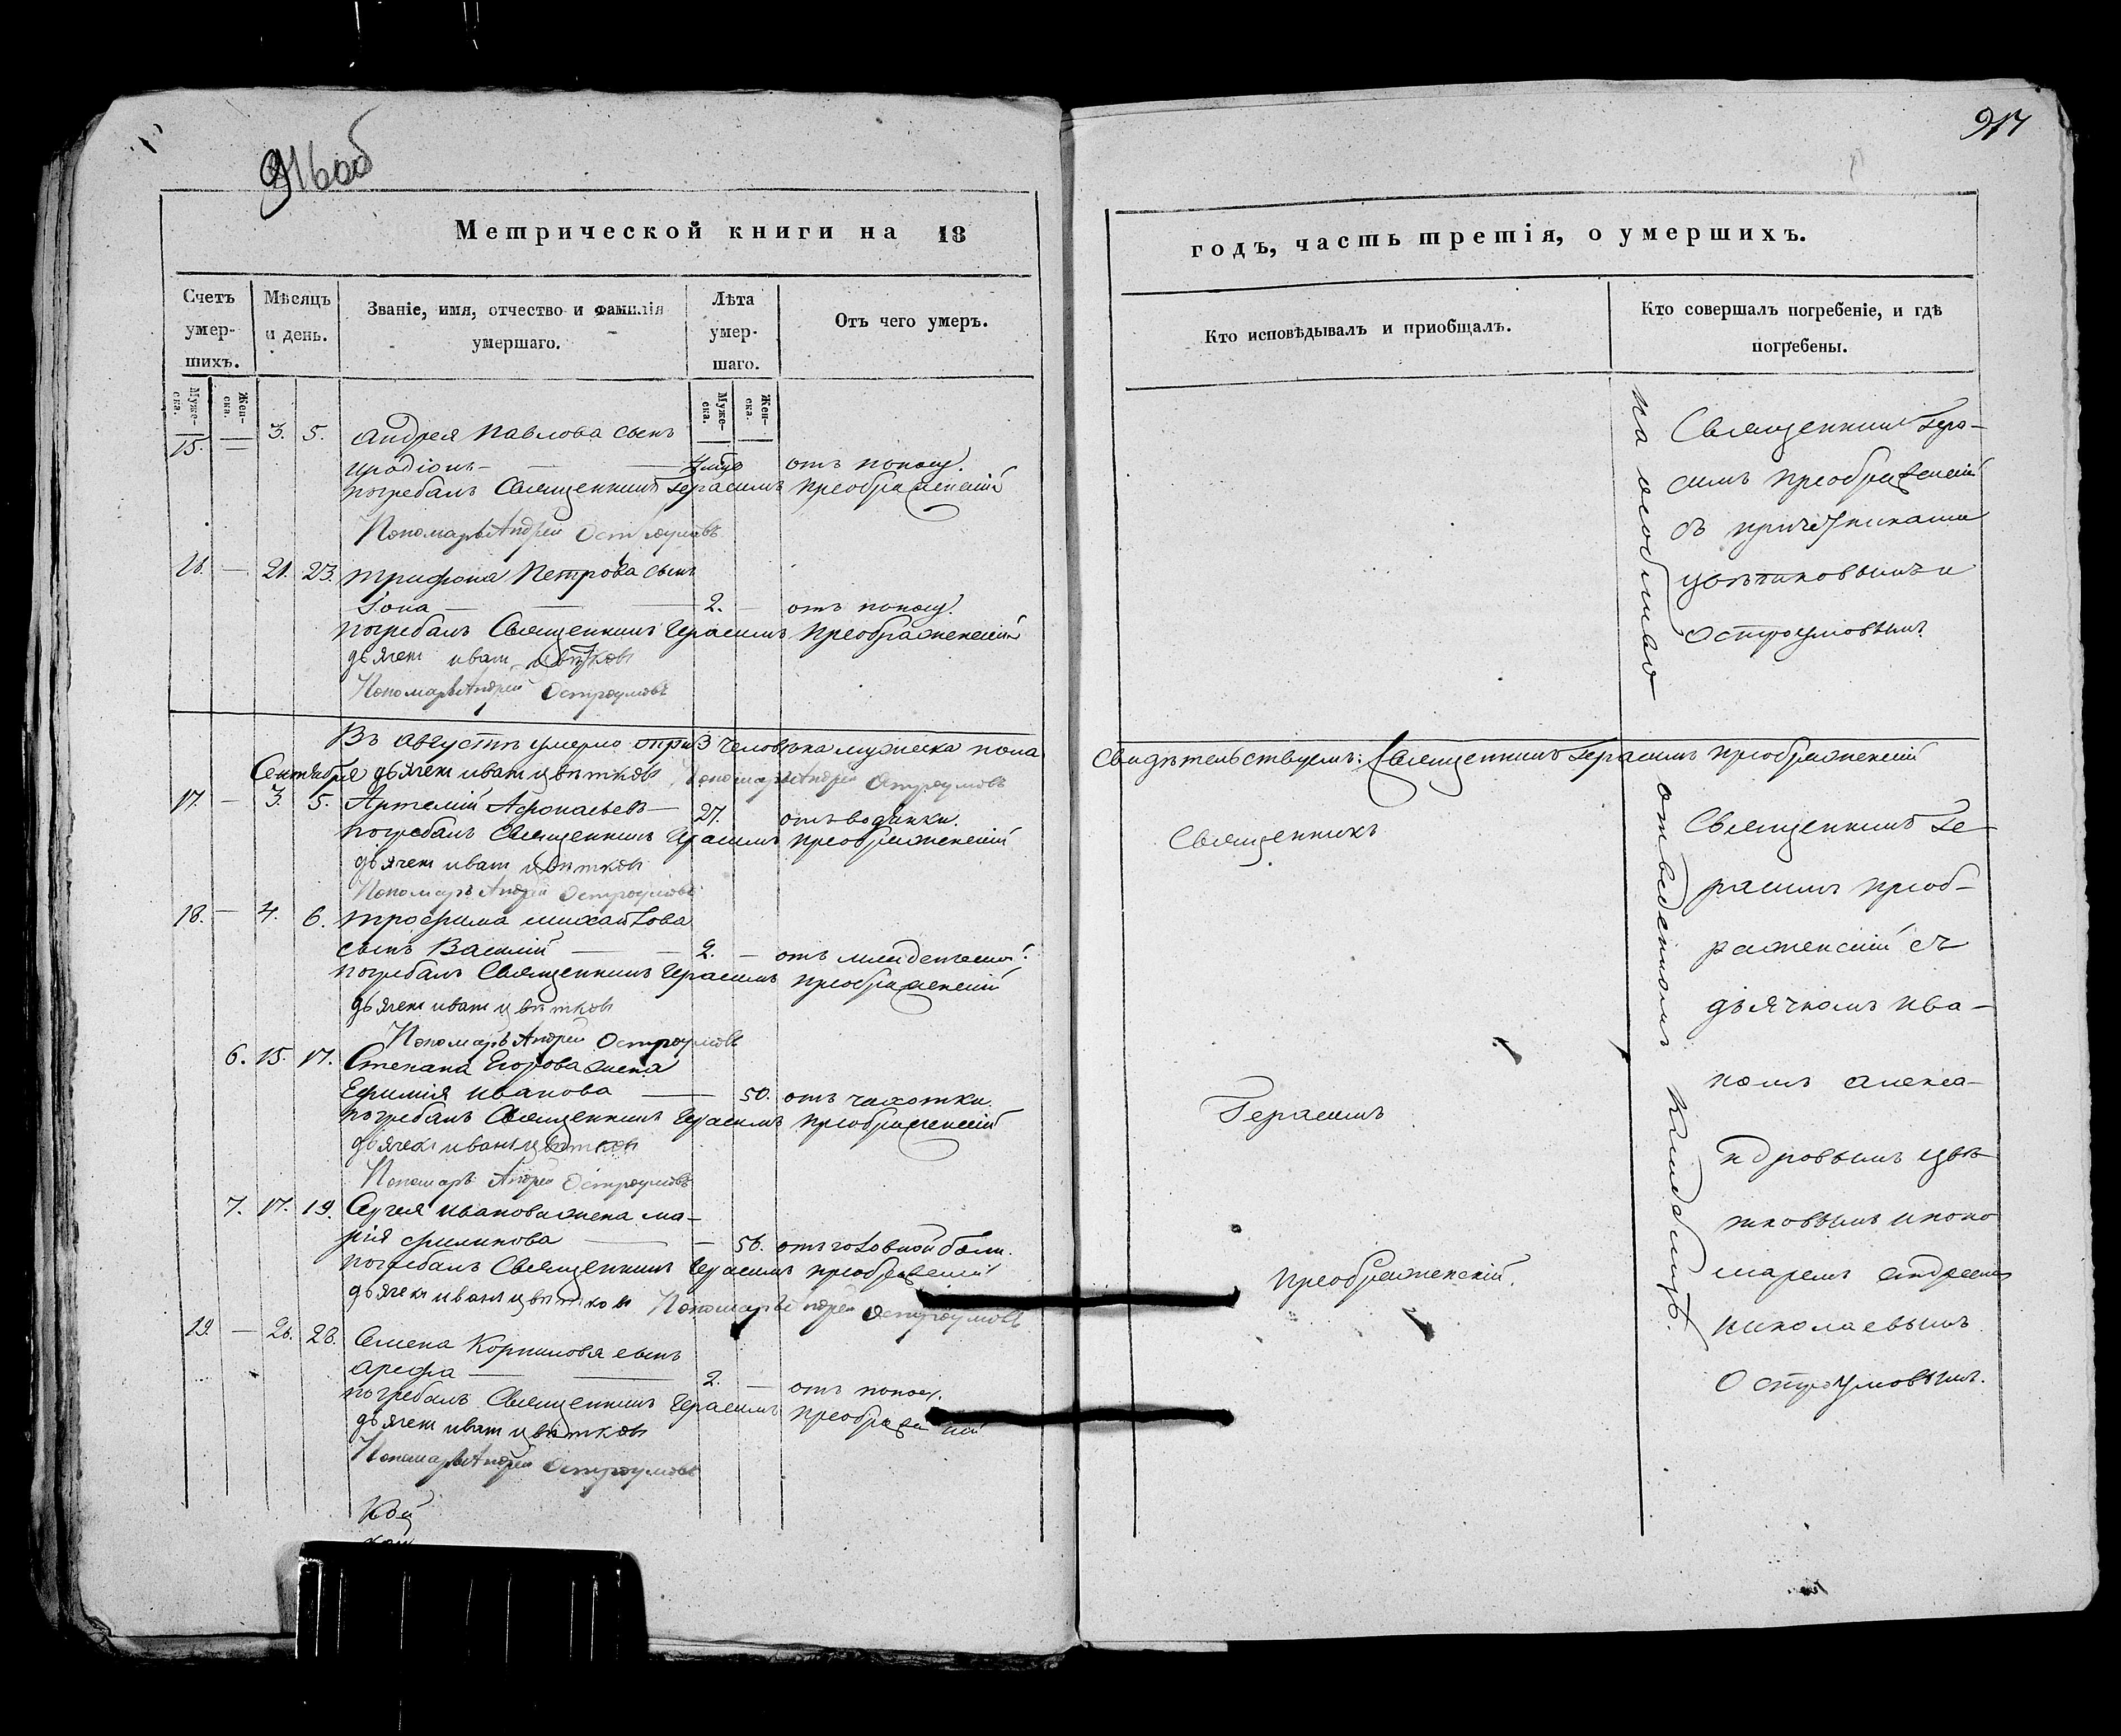 916об
Метрической книги на 18
Счетъ умер- шихъ.
Мѣсяцъ и день.
Званіе, имя, отчество и фамилія умершаго.
Лѣта умер- шаго.
Отъ чего умеръ.
Муже- ска.
Жен- ска.
Муже- ска.
Жен- ска.
15. — 3. 5. Андрея Павлова сынъ
иродіонъ — — отъ поносу.
погребалъ Священникъ Герасимъ преображенскій
Пономарь Андрей Остроумовъ
16. — 21. 23. трифона Петрова сынъ
Іона — — 2. — отъ поносу.
погребалъ Священникъ Герасимъ преображенскій
дьячекъ иванъ цвѣтковъ
Пономарь Андрей Остроумовъ
Въ августѣ умерло три 3 человѣка мужеска пола
Сентября дьячекъ иванъ цвѣтковъ Пономарь Андрей Остроумовъ
17. — 3. 5. Артемій Афонасьевъ — 27. отъ водянки.
погребалъ Священникъ Герасимъ преображенскій
дьячекъ иванъ цвѣтковъ
Пономарь Андрей Остроумовъ
18. — 4. 6. трофима михайлова
сынъ Василій — — 2. — отъ
погребалъ Священникъ Герасимъ преображенскій
дьячекъ иванъ цвѣтковъ
Пономарь Андрей Остроумовъ
6. 15. 17. Степана Егорова жена
Ефимія иванова — 50. отъ чахотки.
погребалъ Священникъ Герасимъ преображенскій
дьячекъ иванъ цвѣтковъ
Пономарь Андрей Остроумовъ
7. 17. 19. Сергея иванова жена ма-
рія филипова — — 56. отъ головной боли.
погребалъ Священникъ Герасимъ преображенскій
дьячекъ иванъ цвѣтковъ Пономарь Андрей Остроумовъ
19. — 26. 28. Семена Корнилова сынъ
арефа — — 2. — отъ поносу.
погребалъ Священникъ Герасимъ преображенскій
дьячекъ иванъ цвѣтковъ
Пономарь Андрей Остроумовъ
917
годъ, часть третія, о умершихъ.
Кто исповѣдывалъ и пріобщалъ.
Кто совершалъ погребеніе, и гдѣ погребены.
Священникъ Гера-
симъ преображенскій
съ причетниками
цвѣтковымъ и
Остроумовымъ
на
Свидѣтельствуемъ: Священникъ Герасимъ преображенскій
Священникъ
Герасимъ
преображенскій.
Священникъ Ге-
расимъ преоб-
раженскій съ
дьячкомъ ива-
номъ алекса-
ндровымъ цвѣ-
тковымъ и поно
маремъ андреемъ
николаевымъ
Остроумовымъ.
отведенномъ кладбищѣ.